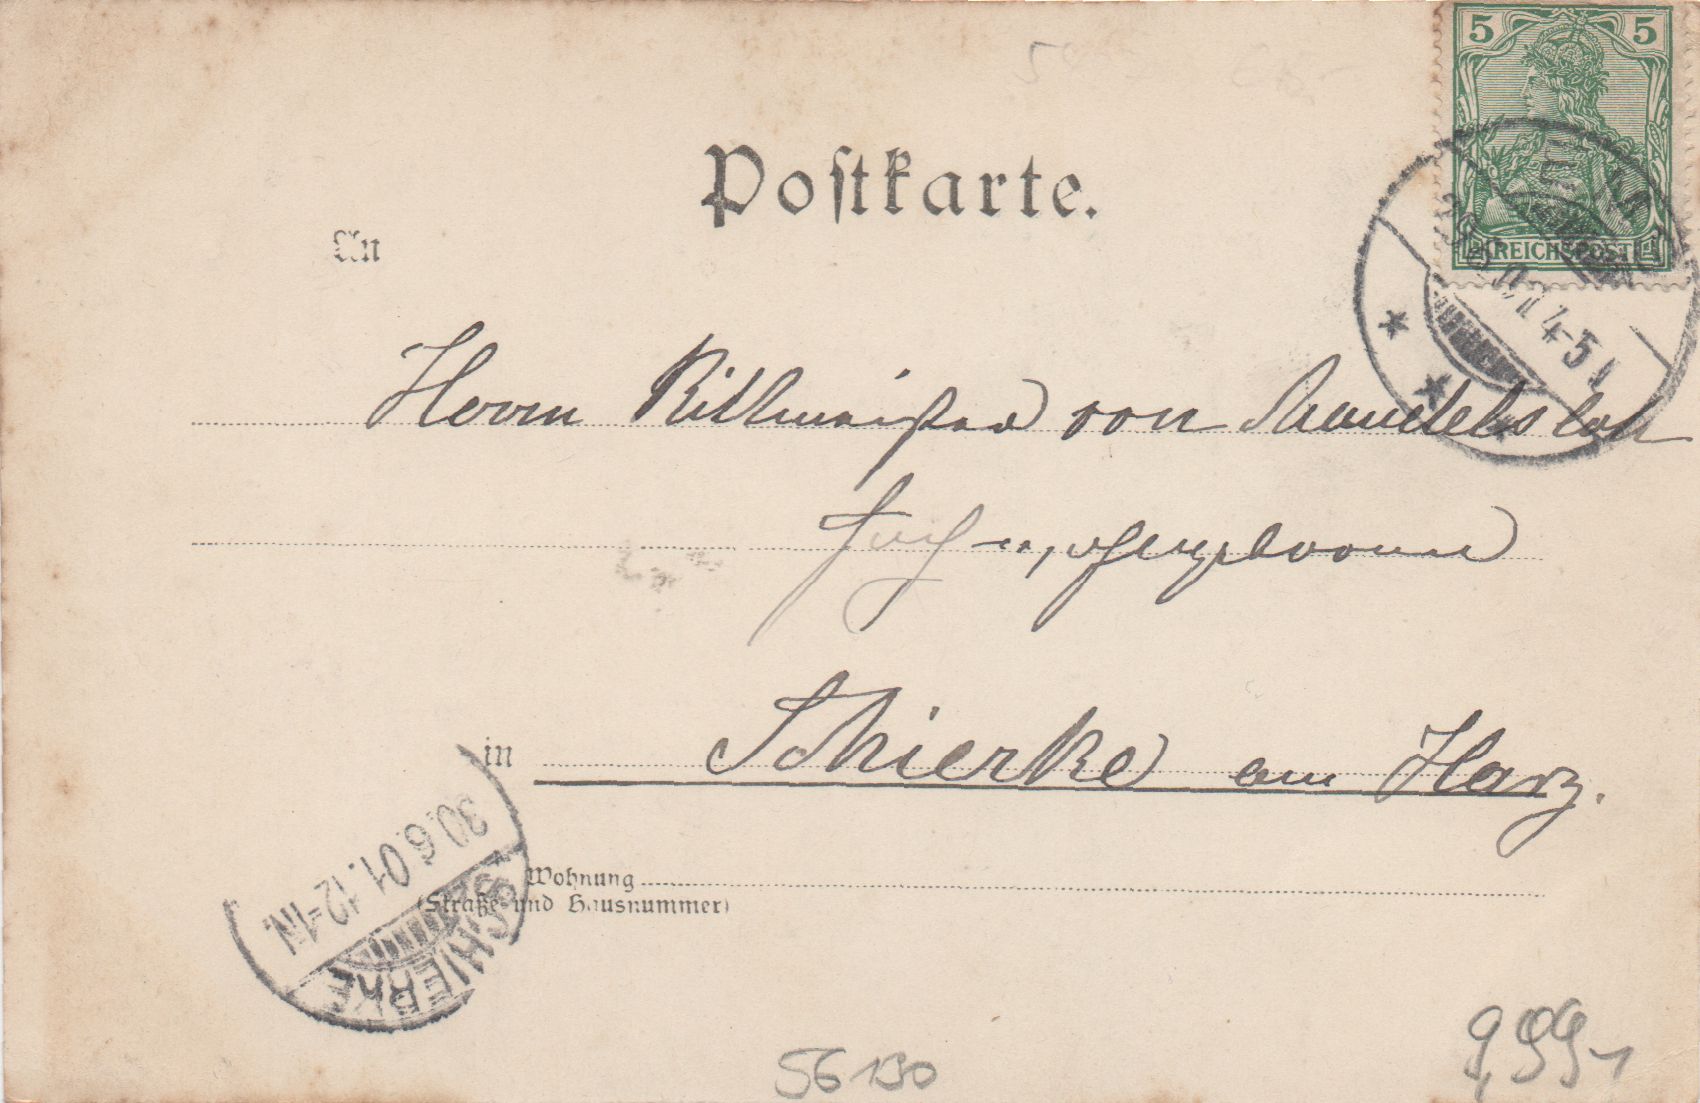 5 5
REICHSPOST
Postkarte.
An
4-5
Herrn Rittmeister von Mandelsloh
Hochwohlgeboren
in Schierke am Harz.
30.6.01.12-1N.
SCHIERKE
Wohnung
(Straße und Hausnummer)
56190
9,99-